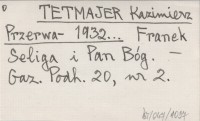 TETMAJER Kazimierz
Przerwa- 1932... Franek
Seliga i Pan Bóg. —
Gaz. Podh. 20, nr 2.